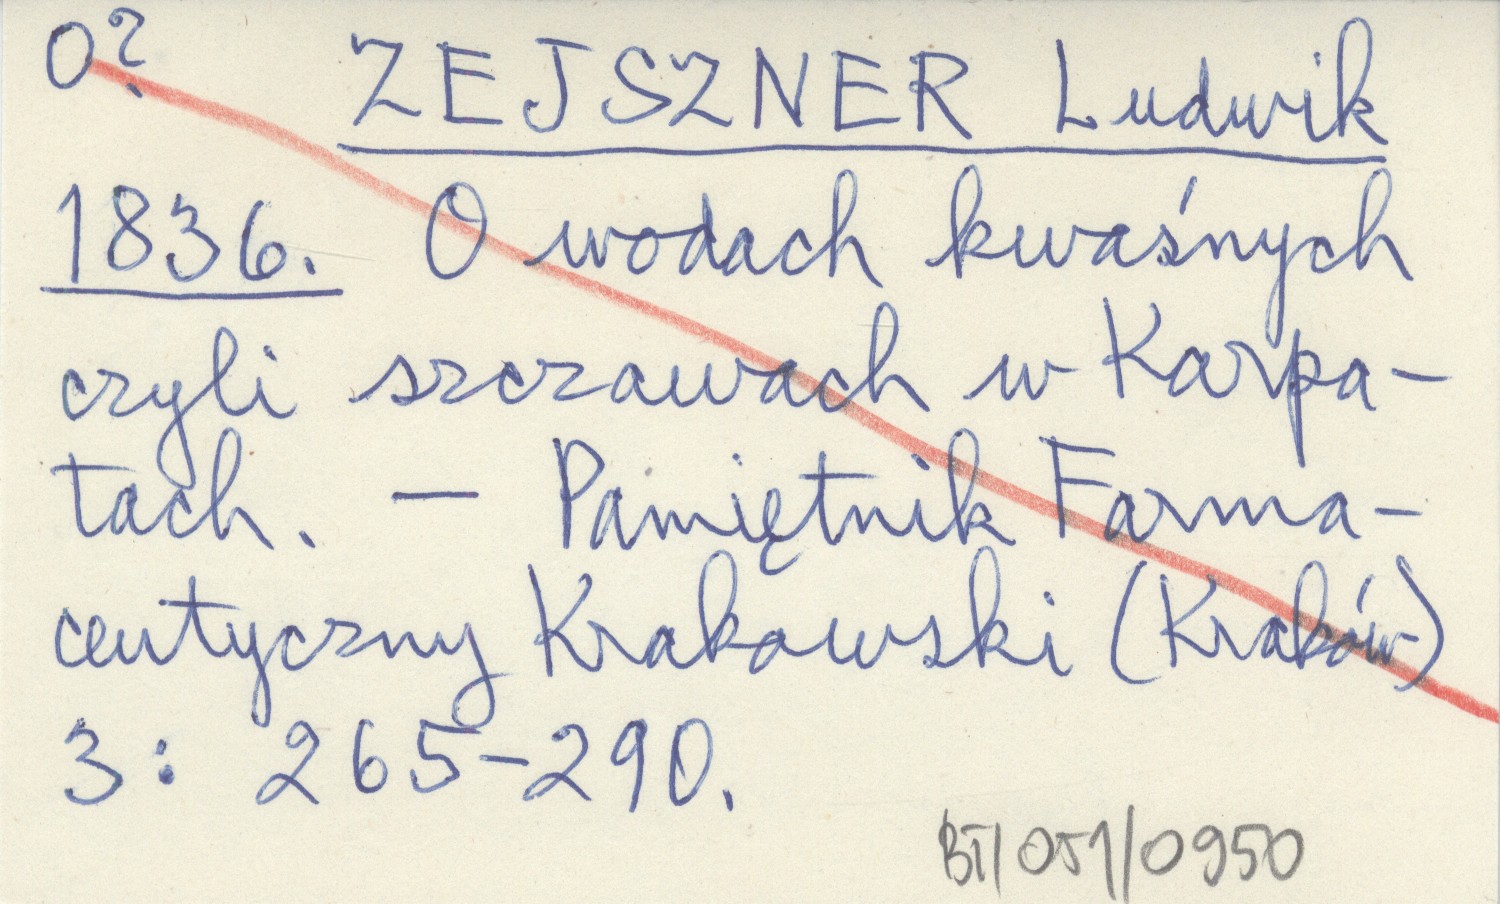 O? ZEJSZNER Ludwik
1836. O wodach kwaśnych
czyli szczawach w Karpa-
tach. — Pamiętnik Farma-
ceutyczny Krakowski (Kraków)
3: 265-290.
BT/051/0950